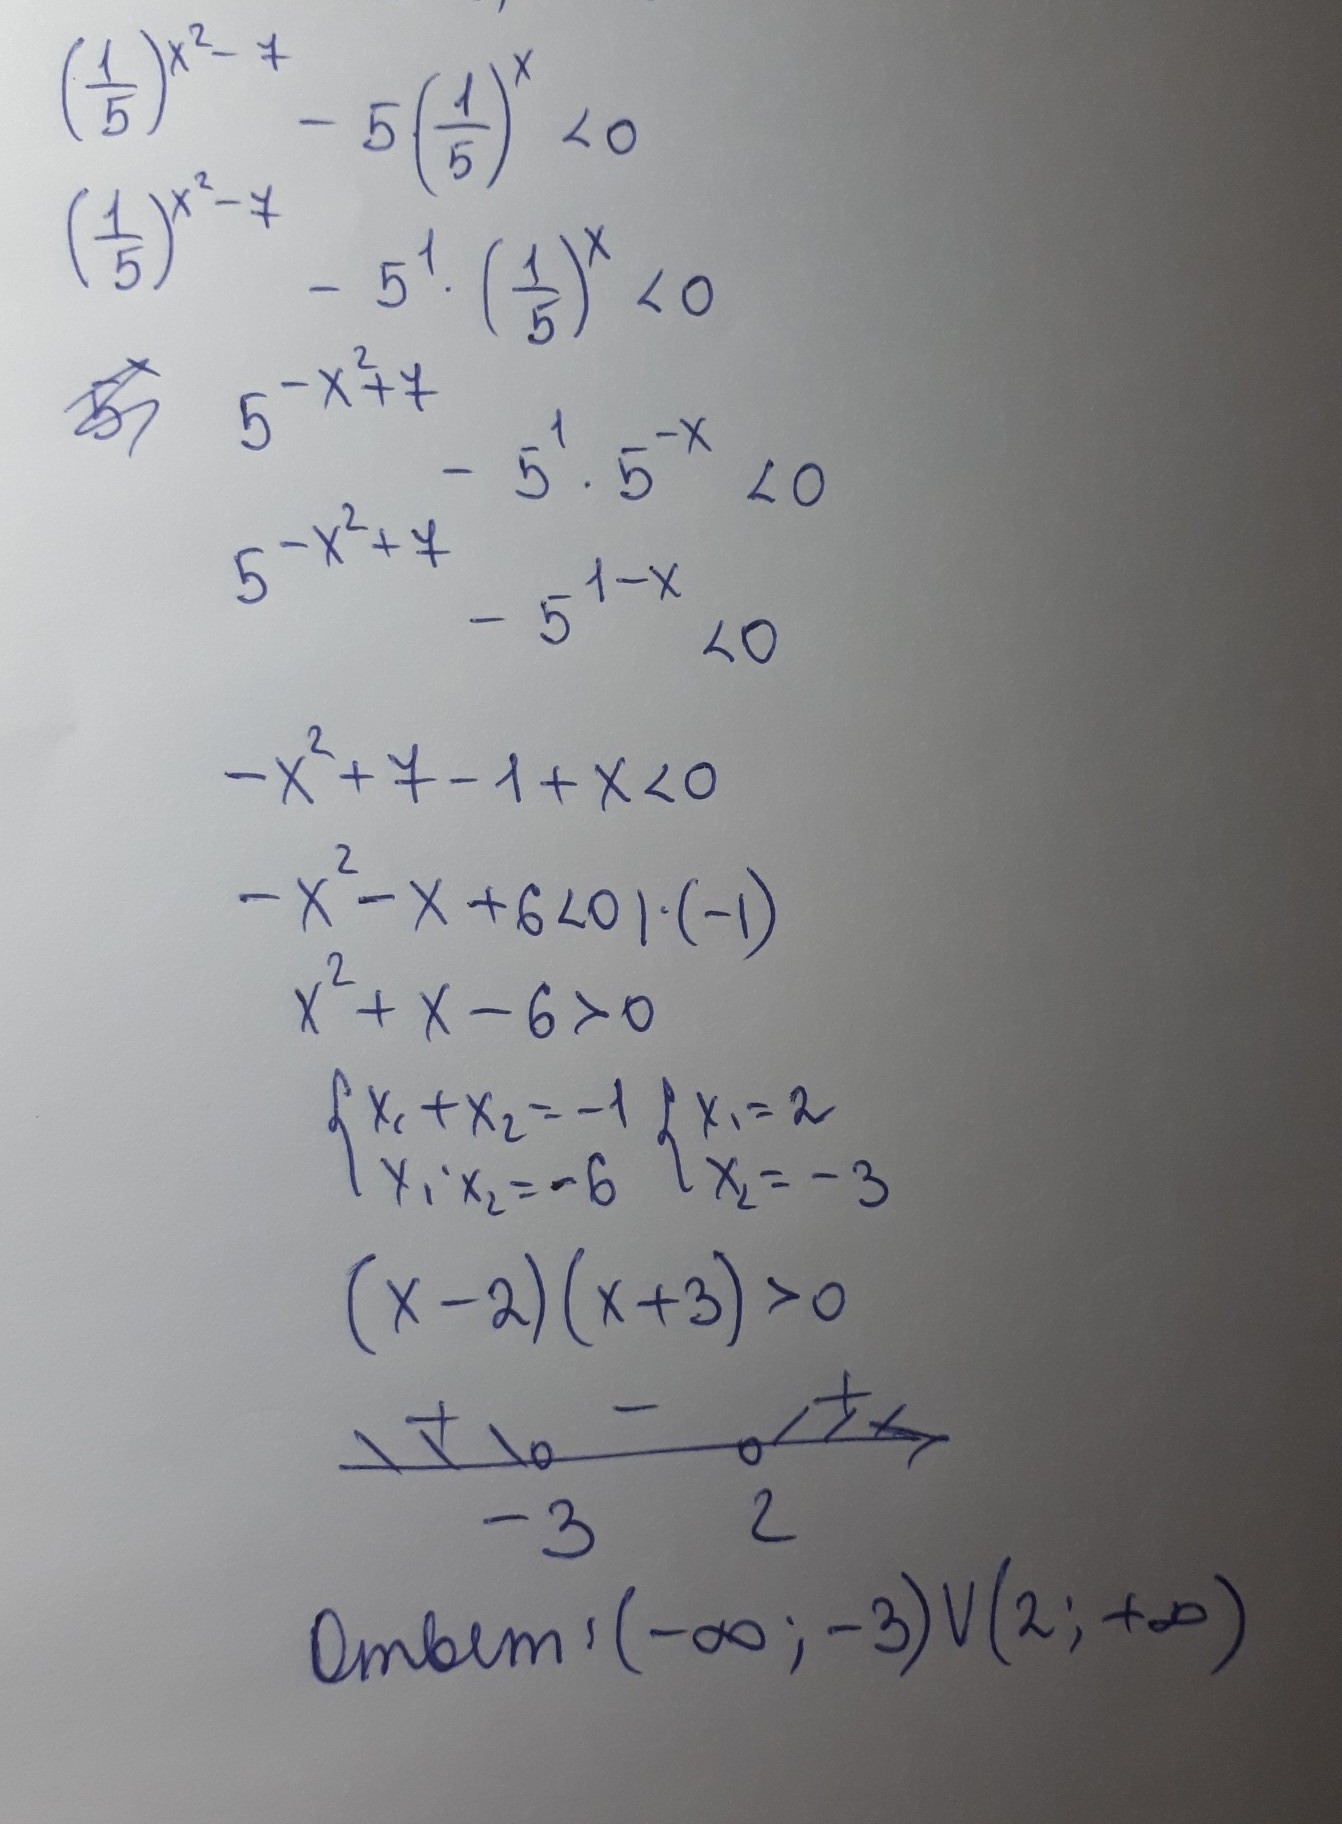 (1/5)^(x²-7) - 5(1/5)^x <0
(1/5)^(x²-7) - 5¹·(1/5)^x <0
5^(-x²+7) - 5¹·5^(-x) <0
5^(-x²+7) - 5^(1-x) <0
-x²+7-1+x<0
-x²-x+6<0|·(-1)
x²+x-6>0
{x₁+x₂=-1 {x₁=2
x₁·x₂=-6 x₂=-3
(x-2)(x+3)>0
+ - +
-3 2
Ответ:(-∞;-3)V(2;+∞)